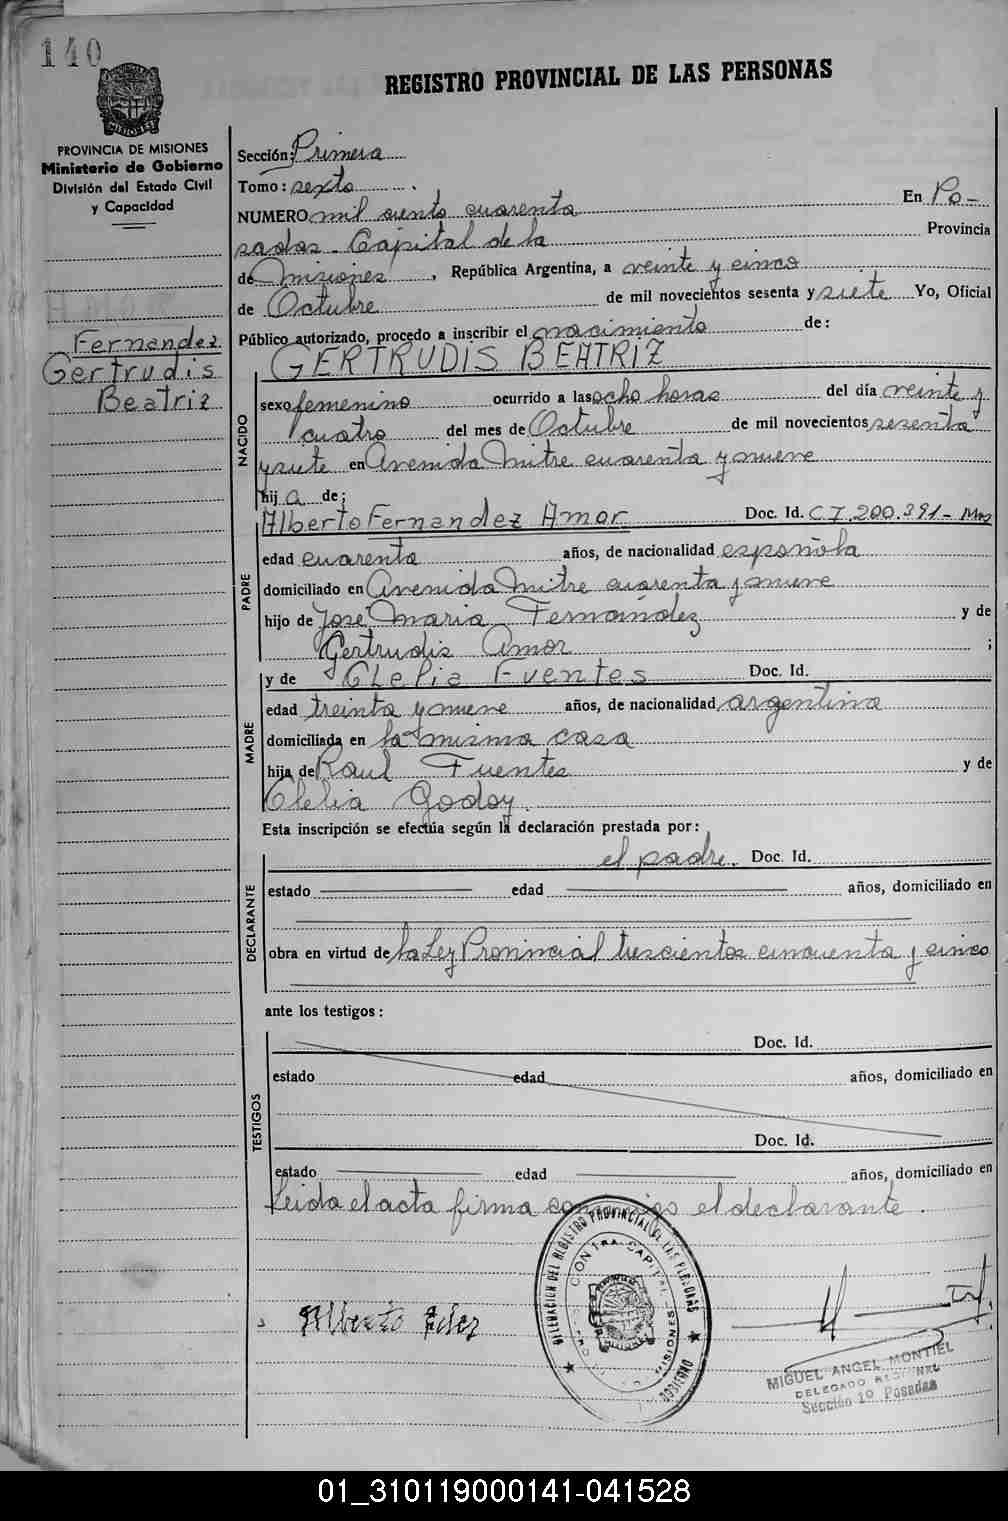 140
REGISTRO PROVINCIAL DE LAS PERSONAS
MISIONES
PROVINCIA DE MISIONES
Ministerio de Gobierno
División del Estado Civil
y Capacidad
Fernandez
Gertrudis
Beatriz
Sección: Primera
Tomo: sexto
NUMERO mil ciento cuarenta En Po-
sadas - Capital de la Provincia
de Misiones, República Argentina, a veinte y cinco
de Octubre de mil novecientos sesenta y siete Yo, Oficial
Público autorizado, procedo a inscribir el nacimiento de:
GERTRUDIS BEATRIZ
NACIDO
sexo femenino ocurrido a las ocho horas del día veinte y
cuatro del mes de Octubre de mil novecientos sesenta
y siete en Avenida Mitre cuarenta y nueve
hija de:
PADRE
Alberto Fernandez Amor Doc. Id. C I. 200.391 - Mns
edad cuarenta años, de nacionalidad española
domiciliado en Avenida Mitre cuarenta y nueve
hijo de José Maria Fernández y de
Gertrudis Amor ;
MADRE
y de Clelia Fuentes Doc. Id.
edad treinta y nueve años, de nacionalidad argentina
domiciliada en la misma casa
hija de Raul Fuentes y de
Clelia Godoy.
Esta inscripción se efectúa según la declaración prestada por:
DECLARANTE
el padre. Doc. Id.
estado edad años, domiciliado en
obra en virtud de la Ley Provincial trescientos cincuenta y cinco
ante los testigos:
TESTIGOS
Doc. Id.
estado edad años, domiciliado en
Doc. Id.
estado edad años, domiciliado en
Leida el acta firma conmigo el declarante.
DELEGACION DEL REGISTRO PROVINCIAL DE LAS PERSONAS
CAPITAL
MISIONES
GOBIERNO
Alberto Fdez
MIGUEL ANGEL MONTIEL
DELEGADO REGIONAL
Sección 1º Posadas
01_310119000141-041528